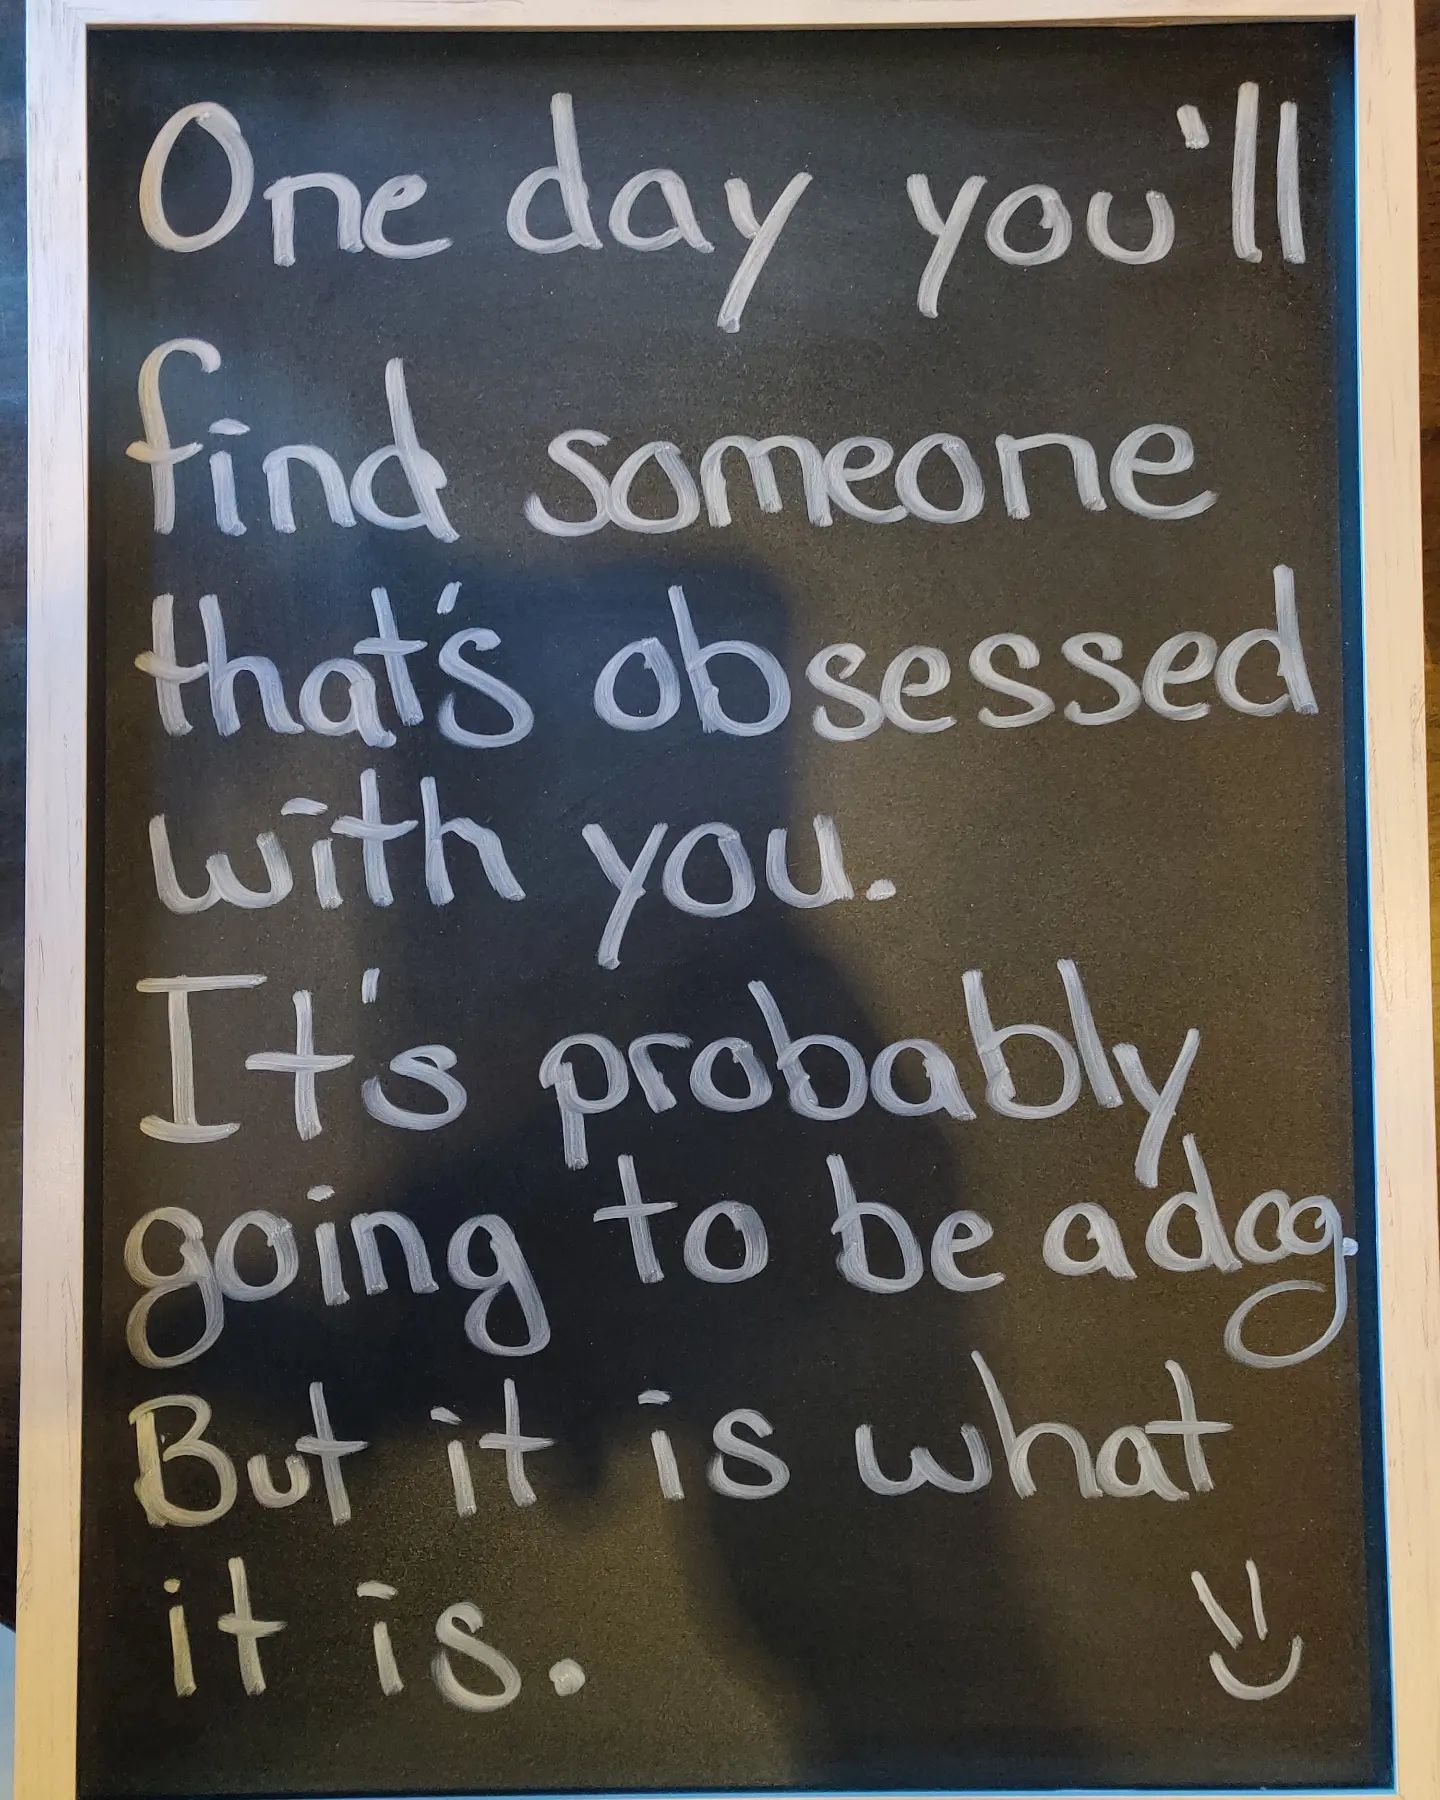 One day you'll
find someone
that's obsessed
with you.
It's probably
going to be a dog.
But it is what
it is.